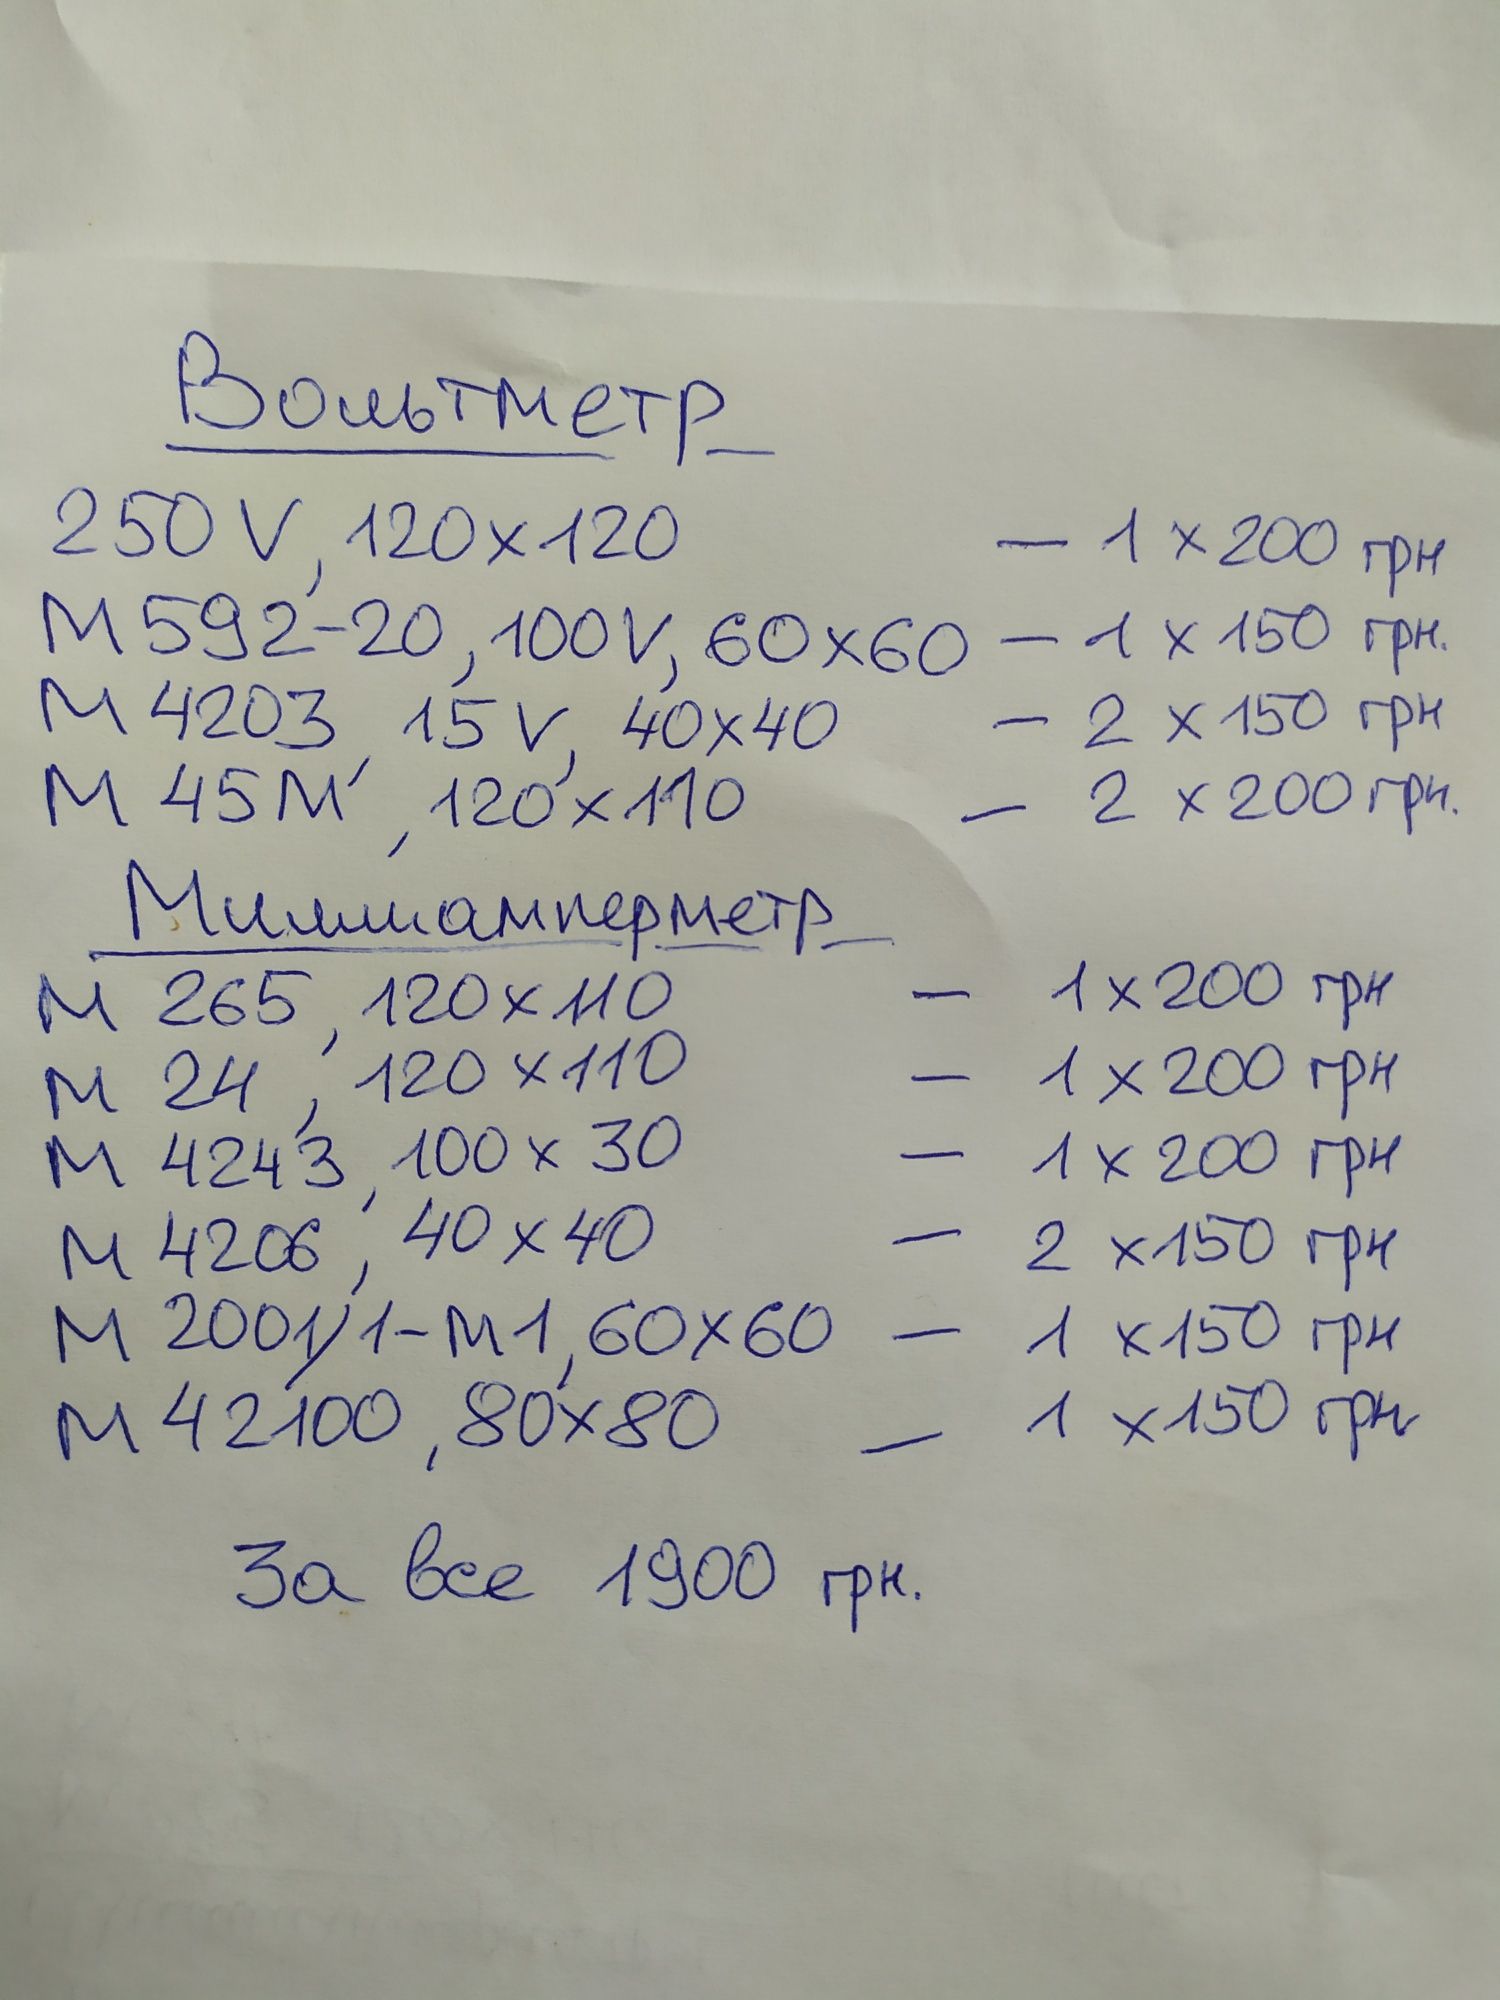 Вольтметр
250 V, 120х120 — 1 х 200 грн
М 592-20, 100V, 60х60 — 1 х 150 грн.
М 4203, 15 V, 40х40 — 2 х 150 грн
М 45М, 120х110 — 2 х 200 грн.
Миллиамперметр
М 265, 120х110 — 1 х 200 грн
М 24, 120 х 110 — 1 х 200 грн
М 4243, 100 х 30 — 1 х 200 грн
М 4206, 40 х 40 — 2 х 150 грн
М 2001/1-М1, 60х60 — 1 х 150 грн
М 42100, 80х80 — 1 х 150 грн
За все 1900 грн.